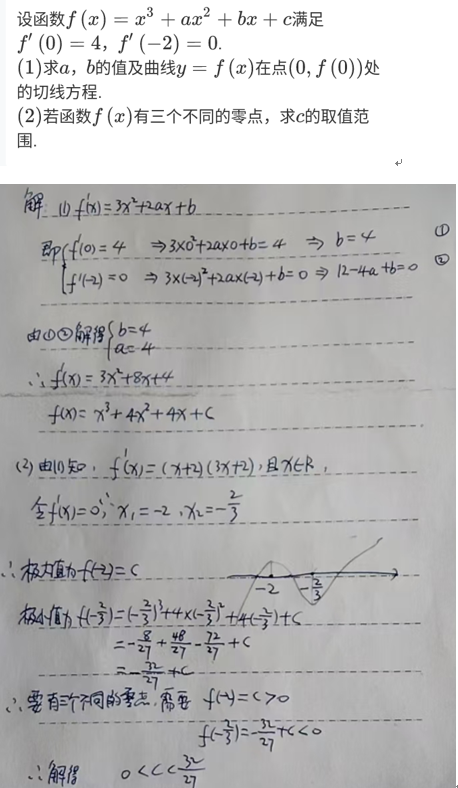 设函数f(x)=x³+ax²+bx+c满足
f′(0)=4，f′(-2)=0.
(1)求a，b的值及曲线y=f(x)在点(0,f(0))处
的切线方程.
(2)若函数f(x)有三个不同的零点，求c的取值范
围.
解 (1) f'(x)=3x²+2ax+b
即{f'(0)=4 ⇒3×0²+2a×0+b=4 ⇒ b=4 ①
f'(-2)=0 ⇒ 3×(-2)²+2a×(-2)+b=0 ⇒ 12-4a+b=0 ②
由①②解得{b=4
a=4
∴ f'(x)=3x²+8x+4
f(x)=x³+4x²+4x+c
(2) 由(1)知, f'(x)=(x+2)(3x+2),且x∈R,
令f'(x)=0, x₁=-2,x₂=-2/3
∴极大值为f(-2)=c
-2 -2/3
极小值为f(-2/3)=(-2/3)³+4×(-2/3)²+4(-2/3)+c
=-8/27+48/27-72/27+c
=-32/27+c
∴要有三个不同的零点,需要 f(-2)=c>0
f(-2/3)=-32/27+c<0
∴解得 0<c<32/27